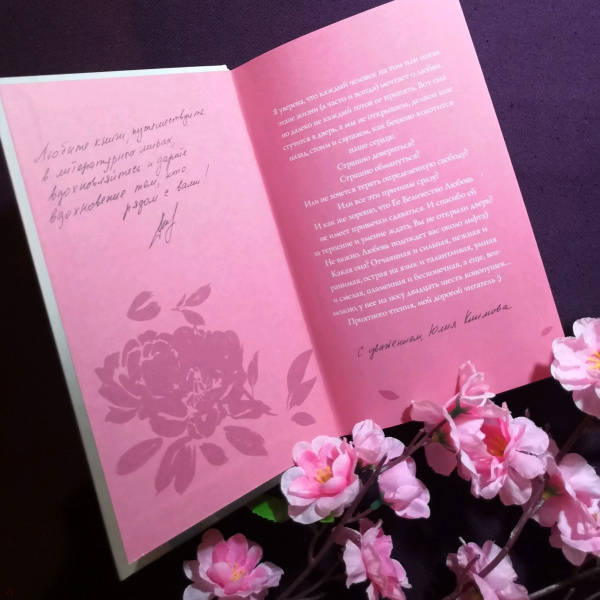 Любите книги, путешествуйте
в литературных мирах,
вдохновляйтесь и дарите
вдохновение тем, кто
рядом с вами!
Я уверена, что каждый человек на том или ином
этапе жизни (а часто и всегда) мечтает о любви,
но далеко не каждый готов ее принять. Вот она
стучится в дверь, а мы не открываем, делаем шаг
назад, стоим и слушаем, как бешено колотится
наше сердце.
Страшно довериться?
Страшно обмануться?
Или не хочется терять определенную свободу?
Или все эти причины сразу?
И как же хорошо, что Ее Величество Любовь
не имеет привычки сдаваться. И спасибо ей
за терпение и умение ждать. Вы не открыли дверь?
Не важно. Любовь подождет вас около лифта)
Какая она? Отчаянная и сильная, нежная и
ранимая, острая на язык и талантливая, умная
и смелая, пламенная и бесконечная, а еще, воз-
можно, у нее на носу двадцать шесть конопушек...
Приятного чтения, мой дорогой читатель :)
С уважением, Юлия Климова